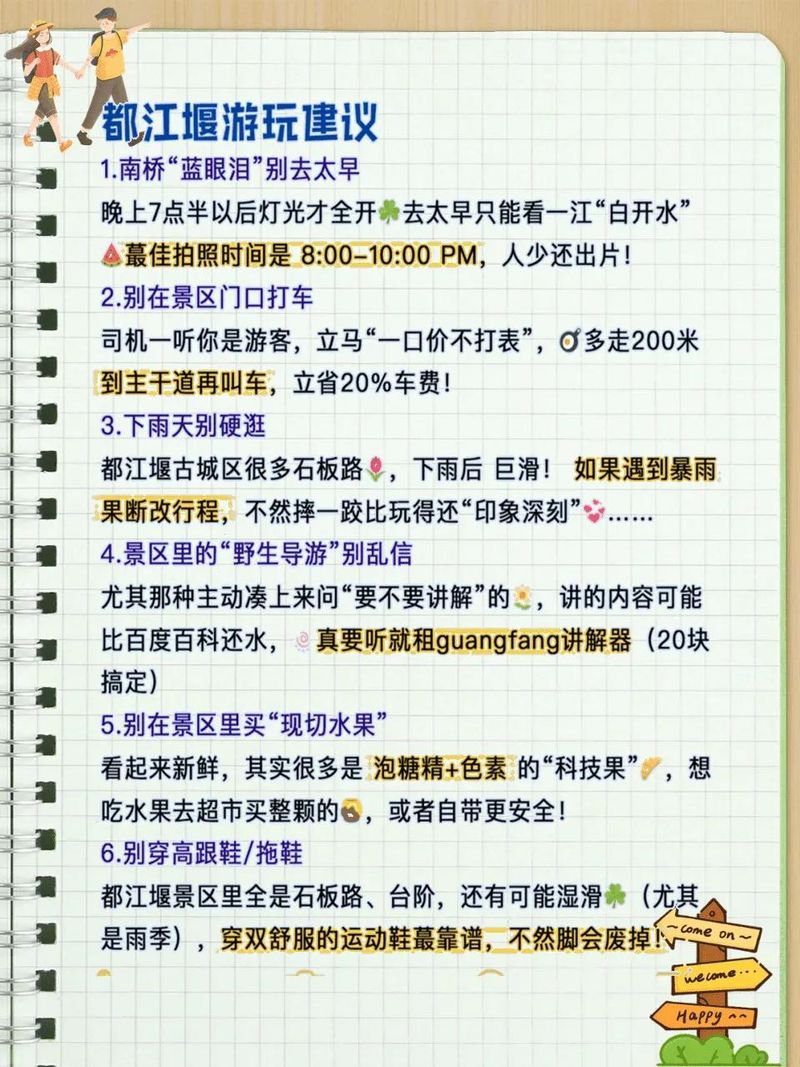 都江堰游玩建议
1.南桥“蓝眼泪”别去太早
晚上7点半以后灯光才全开☘️去太早只能看一江“白开水”
🍉蕞佳拍照时间是 8:00-10:00 PM，人少还出片！
2.别在景区门口打车
司机一听你是游客，立马“一口价不打表”，🍳多走200米
到主干道再叫车，立省20%车费！
3.下雨天别硬逛
都江堰古城区很多石板路🌷，下雨后 巨滑！ 如果遇到暴雨
果断改行程，不然摔一跤比玩得还“印象深刻”💞……
4.景区里的“野生导游”别乱信
尤其那种主动凑上来问“要不要讲解”的🌼，讲的内容可能
比百度百科还水，🍥真要听就租guangfang讲解器（20块
搞定）
5.别在景区里买“现切水果”
看起来新鲜，其实很多是 泡糖精+色素 的“科技果”🥖，想
吃水果去超市买整颗的，或者自带更安全！
6.别穿高跟鞋/拖鞋
都江堰景区里全是石板路、台阶，还有可能湿滑☘️（尤其
是雨季），穿双舒服的运动鞋蕞靠谱，不然脚会废掉！
~come on~
wecome...
Happy ^^